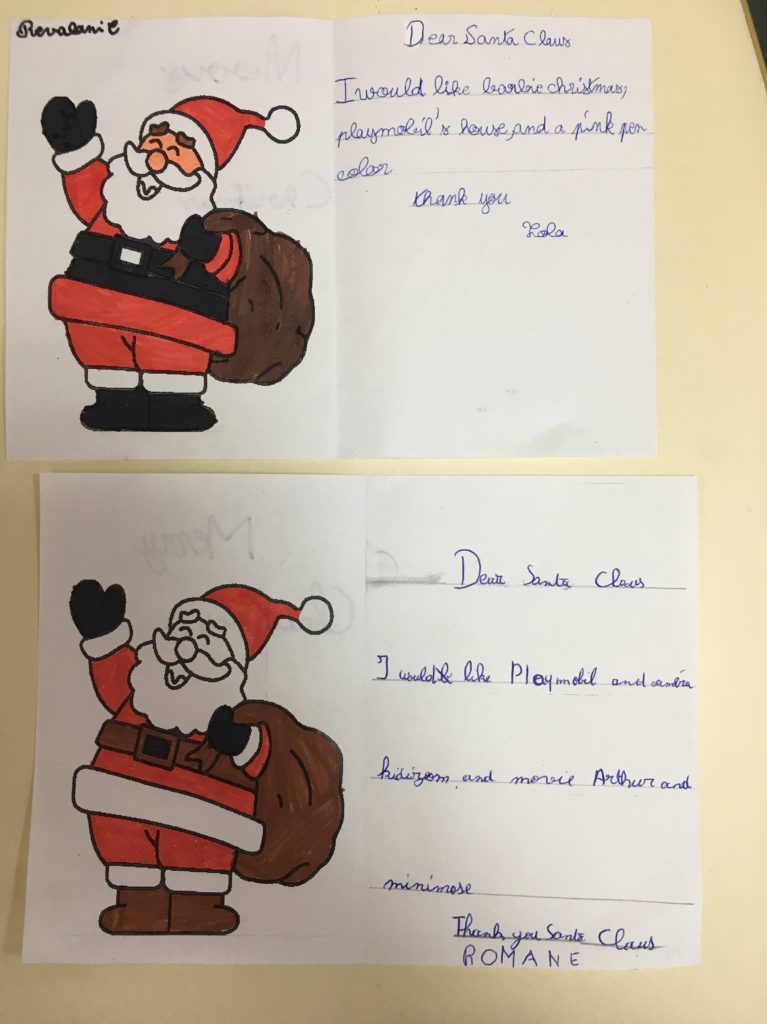 Dear Santa Claus
I would like barbie christmas,
playmobil's house, and a pink pen
color
thank you
Lola
Merry
Dear Santa Claus
I would like Playmobil and caméra
kidizom and movie Arthur and
minimose
Thank you Santa Claus
ROMANE